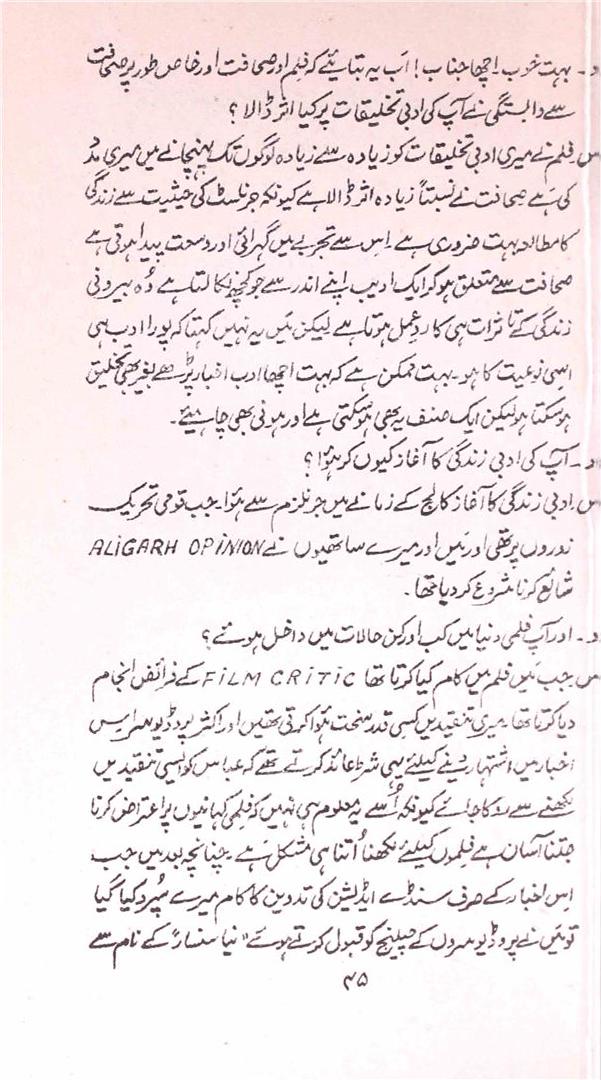 د۔ بہت خوب۔ اچھا جناب! اب یہ بتائیے کہ فلم اور صحافت اور خاص طور پر صحافت
سے وابستگی نے آپ کی ادبی تخلیقات پر کیا اثر ڈالا؟
س۔ فلم نے میری ادبی تخلیقات کو زیادہ سے زیادہ لوگوں تک پہنچانے میں میری مدد
کی ہے صحافت نے نسبتاً زیادہ اثر ڈالا ہے کیونکہ جرنلسٹ کی حیثیت سے زندگی
کا مطالعہ بہت ضروری ہے۔ اس سے تجربے میں گہرائی اور وسعت پیدا ہوتی ہے
صحافت سے متعلق ہو کر ایک ادیب اپنے اندر سے جو کچھ نکالتا ہے وُہ بیرونی
زندگی کے تاثرات ہی کا ردِ عمل ہوتا ہے لیکن مَیں یہ نہیں کہتا کہ پورا ادب ہی
اسی نوعیت کا ہو۔ بہت ممکن ہے کہ بہت اچھا ادب اخبار پڑھے بغیر بھی تخلیق
ہو سکتا ہو لیکن ایک صنف یہ بھی ہو سکتی ہے اور ہونی بھی چاہیئے۔
د۔ آپ کی ادبی زندگی کا آغاز کیوں کر ہؤا؟
س۔ ادبی زندگی کا آغاز کالج کے زمانے میں جرنلزم سے ہؤا۔ جب قومی تحریک
زوروں پر تھی اور مَیں اور میرے ساتھیوں نے ALIGARH OPINION
شائع کرنا شروع کر دیا تھا۔
د۔ اور آپ فلمی دنیا میں کب اور کن حالات میں داخل ہوئے؟
س۔ جب مَیں فلم میں کام کیا کرتا تھا FILM CRITIC کے فرائض انجام
دیا کرتا تھا۔ میری تنقیدیں کسی قدر سخت ہؤا کرتی تھیں اور اکثر پروڈیوسر اس
اخبار میں اشتہار دینے کیلئے یہی شرط عائد کرتے تھے کہ عباس کو ایسی تنقیدیں
لکھنے سے روکا جائے کیونکہ اُسے یہ معلوم ہی نہیں کہ فلمی کہانیوں پر اعتراض کرنا
جتنا آسان ہے فلموں کیلئے لکھنا اُتنا ہی مشکل ہے۔ چنانچہ بعد میں جب
اِس اخبار کے صرف سنڈے ایڈیشن کی تدوین کا کام میرے سُپرد کیا گیا
تو مَیں نے پروڈیوسروں کے چیلنج کو قبول کرتے ہوئے "نیا سنسار" کے نام سے
۴۵